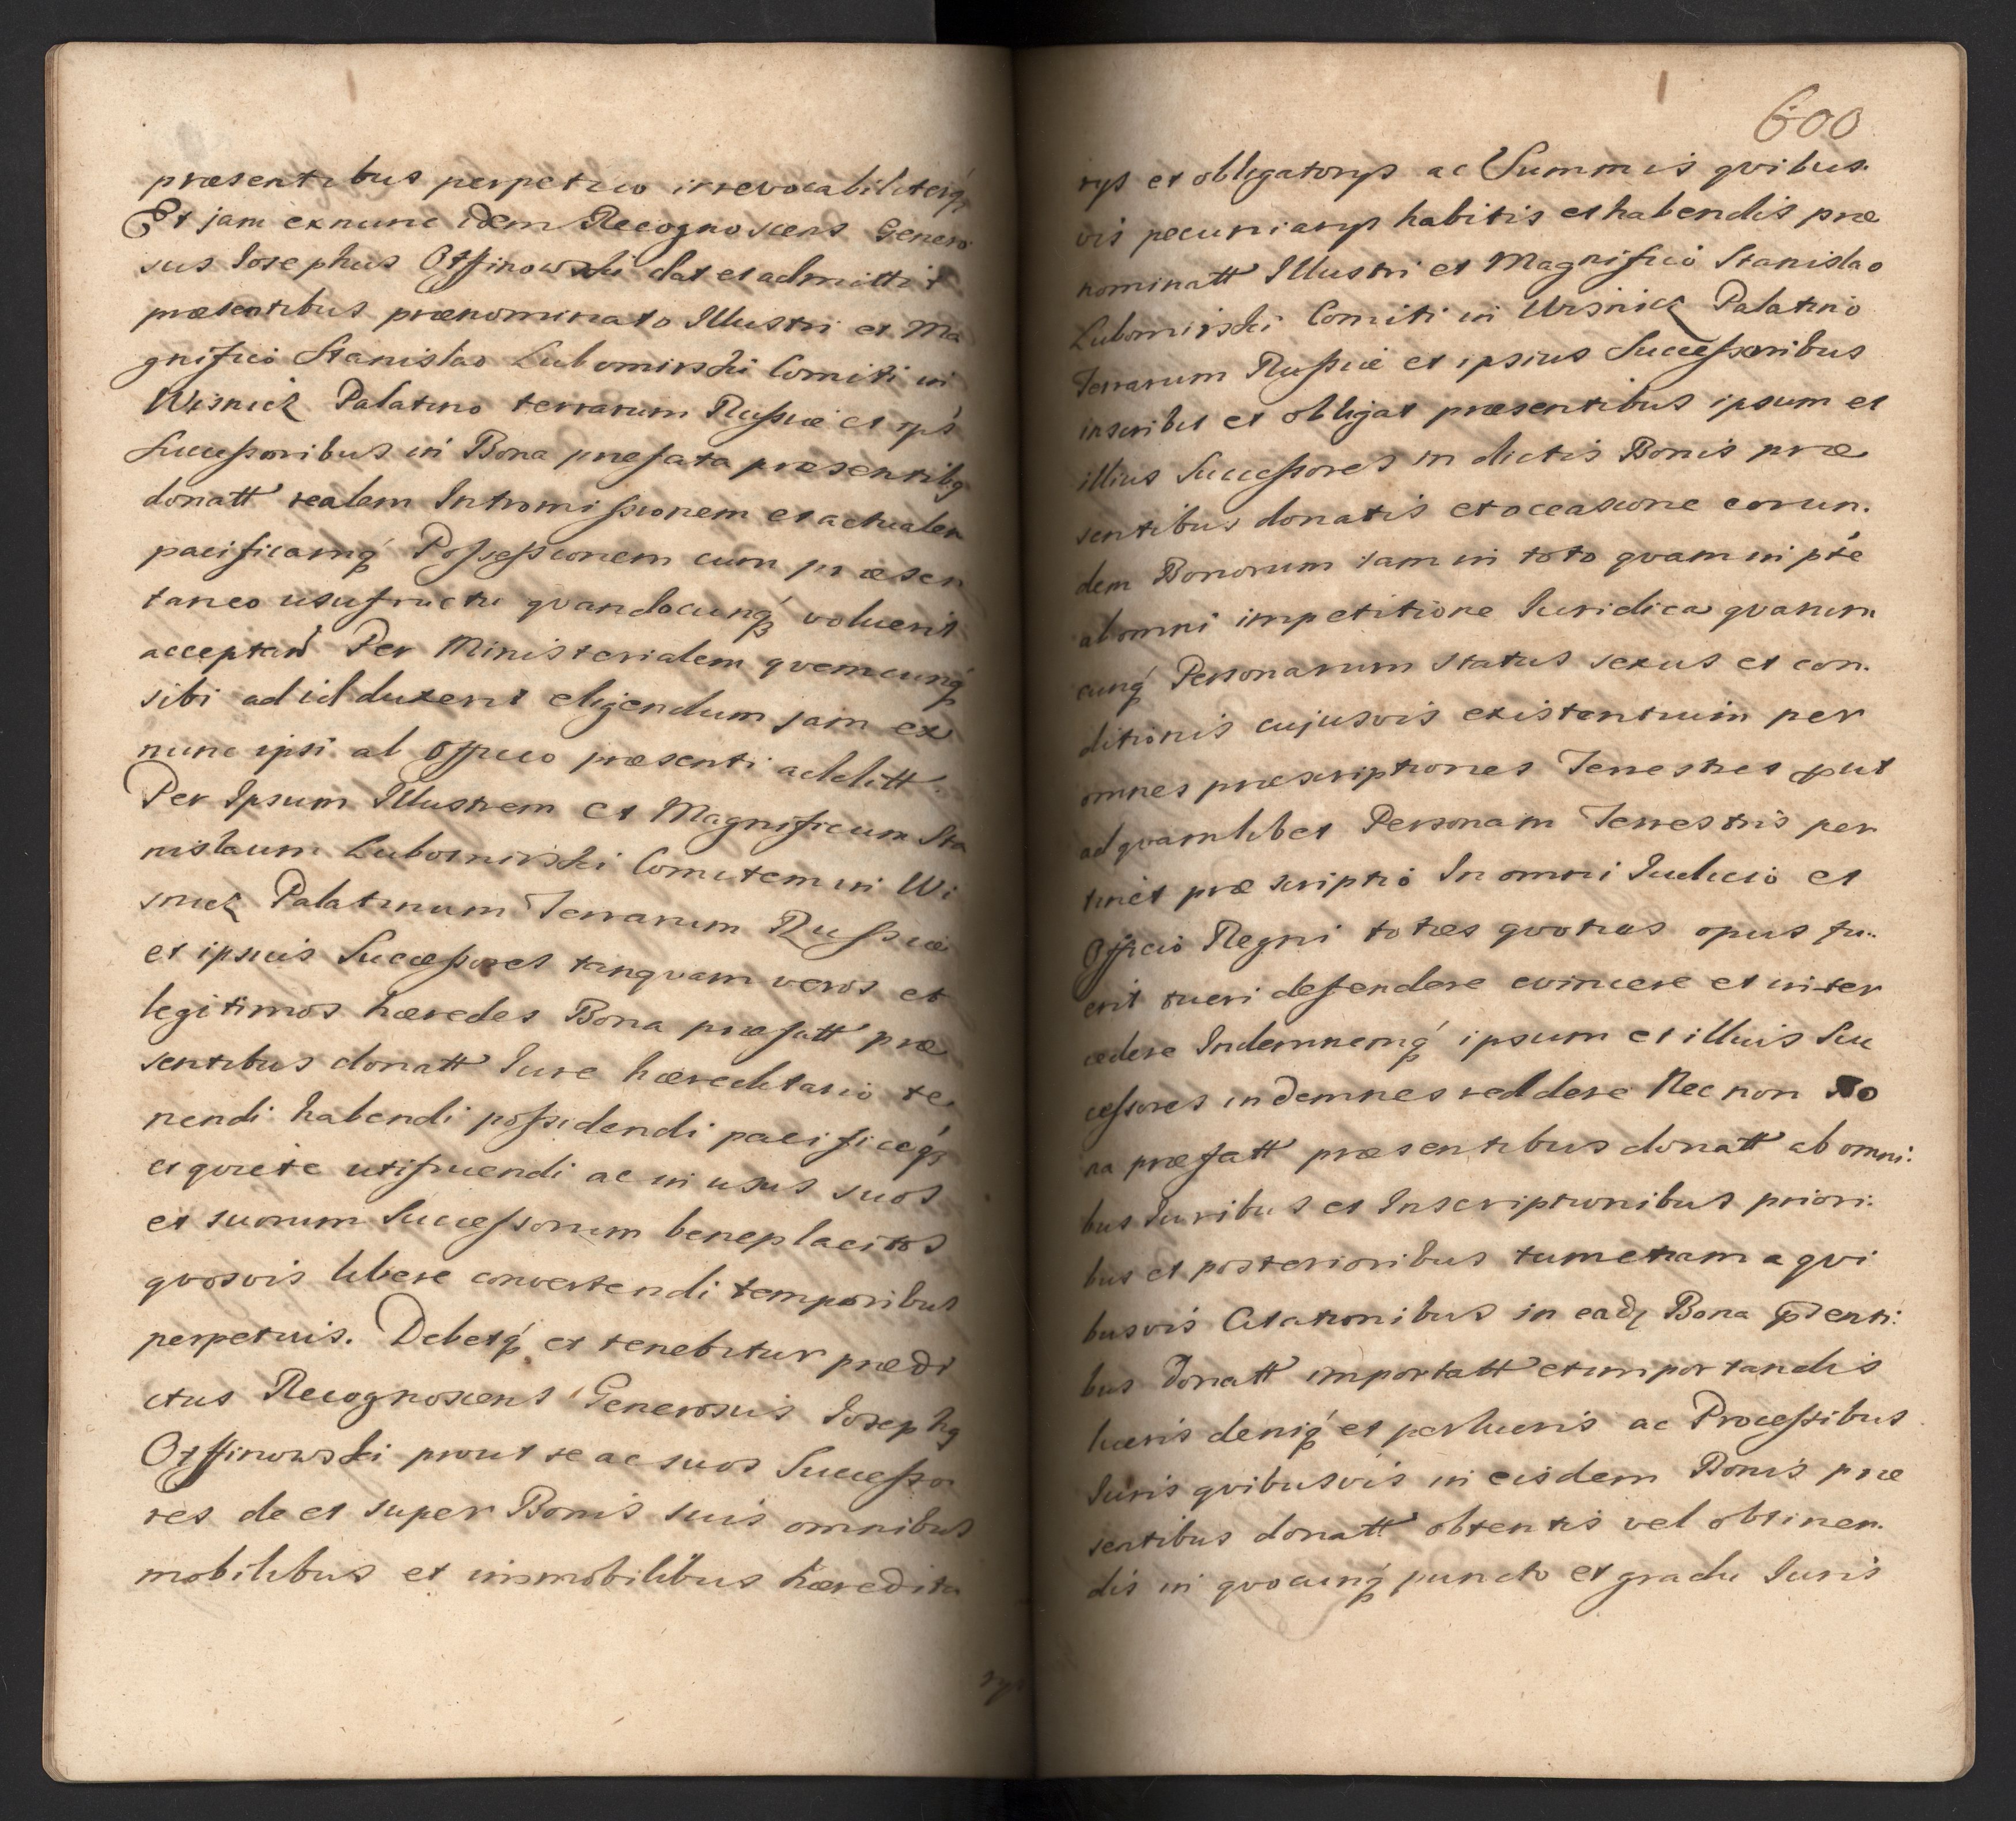 præsentibus perpetuo irrevocabiliterq́
Et jam exnunc idem Recognoscens Genero
sus Josephus Ossinowski dat et admittit
præsentibus prænominato Illustri et Ma
gnifico Stanislao Lubomirski Comiti in
Wisnicz Palatino terrarum Russiæ et ips
Successoribus in Bona præfata præsentibq
donatt realem Intromissionem et actualem
pacificamq́ Possessionem cum præsen
taneo usufructu qvandocunq́ voluerit
acceptand Per Ministerialem qvemcunq́
sibi ad id duxerit eligendum jam ex
nunc ipsi ab Officio præsenti additt.
Per Ipsum Illustrem et Magnificum Sta
nislaum Lubomirski Comitem in Wi
snicz Palatinum Terrarum Russiæ
et ipsius Successores tanqvam veros et
legitimos hæredes Bona præfatt præ
sentibus donatt Jure hæreditario te
nendi habendi possidendi pacificeq́
et qviete utifruendi ac in usus suos
et suorum Successorum beneplacitos
qvosvis libere convertendi temporibus
perpetuis. Debetq́ et tenebitur prædi
ctus Recognoscens Generosus Josephq
Ossinowski prout se ac suos Successo
res de et super Bonis suis omnibus
mobilibus et immobilibus hæredita
rys
600
rys et obligatorys ac Summis qvibus.
vis pecuniarys habitis et habendis præ
nominatt Illustri et Magnifico Stanislao
Lubomirski Comiti in Wisnicz Palatino
Terrarum Russiæ et ipsius Successoribus
inscribit et obligat præsentibus ipsum et
illius Successores in dictis Bonis præ
sentibus donatis et occasione eorun.
dem Bonorum tam in toto qvam in pte
ab omni impetitione Juridica qvarum
cunq́ Personarum status sexus et con.
ditionis cujusvis existentium per
omnes præscriptiones Terrestres put
ad qvamlibet Personam Terrestris per
tinet præscriptio In omni Judicio et
Officio Regni toties qvoties opus fu..
erit tueri defendere evincere et inter
cedere Indemnemq́ ipsum et illius Suc
cessores indemnes reddere Nec non Bo
na præfatt præsentibus donatt ab omni.
bus Juribus et Inscriptionibus priori.
bus et posterioribus tum etiam a qvi
busvis Citationibus in eadz Bona psenti.
bus Donatt importatt et importandis
lucris deniq́ et perlucris ac Processibus
Juris qvibusvis in eisdem Bonis præ
sentibus donatt obtentis vel obtinen.
dis in qvocunq́ puncto et gradu Juris